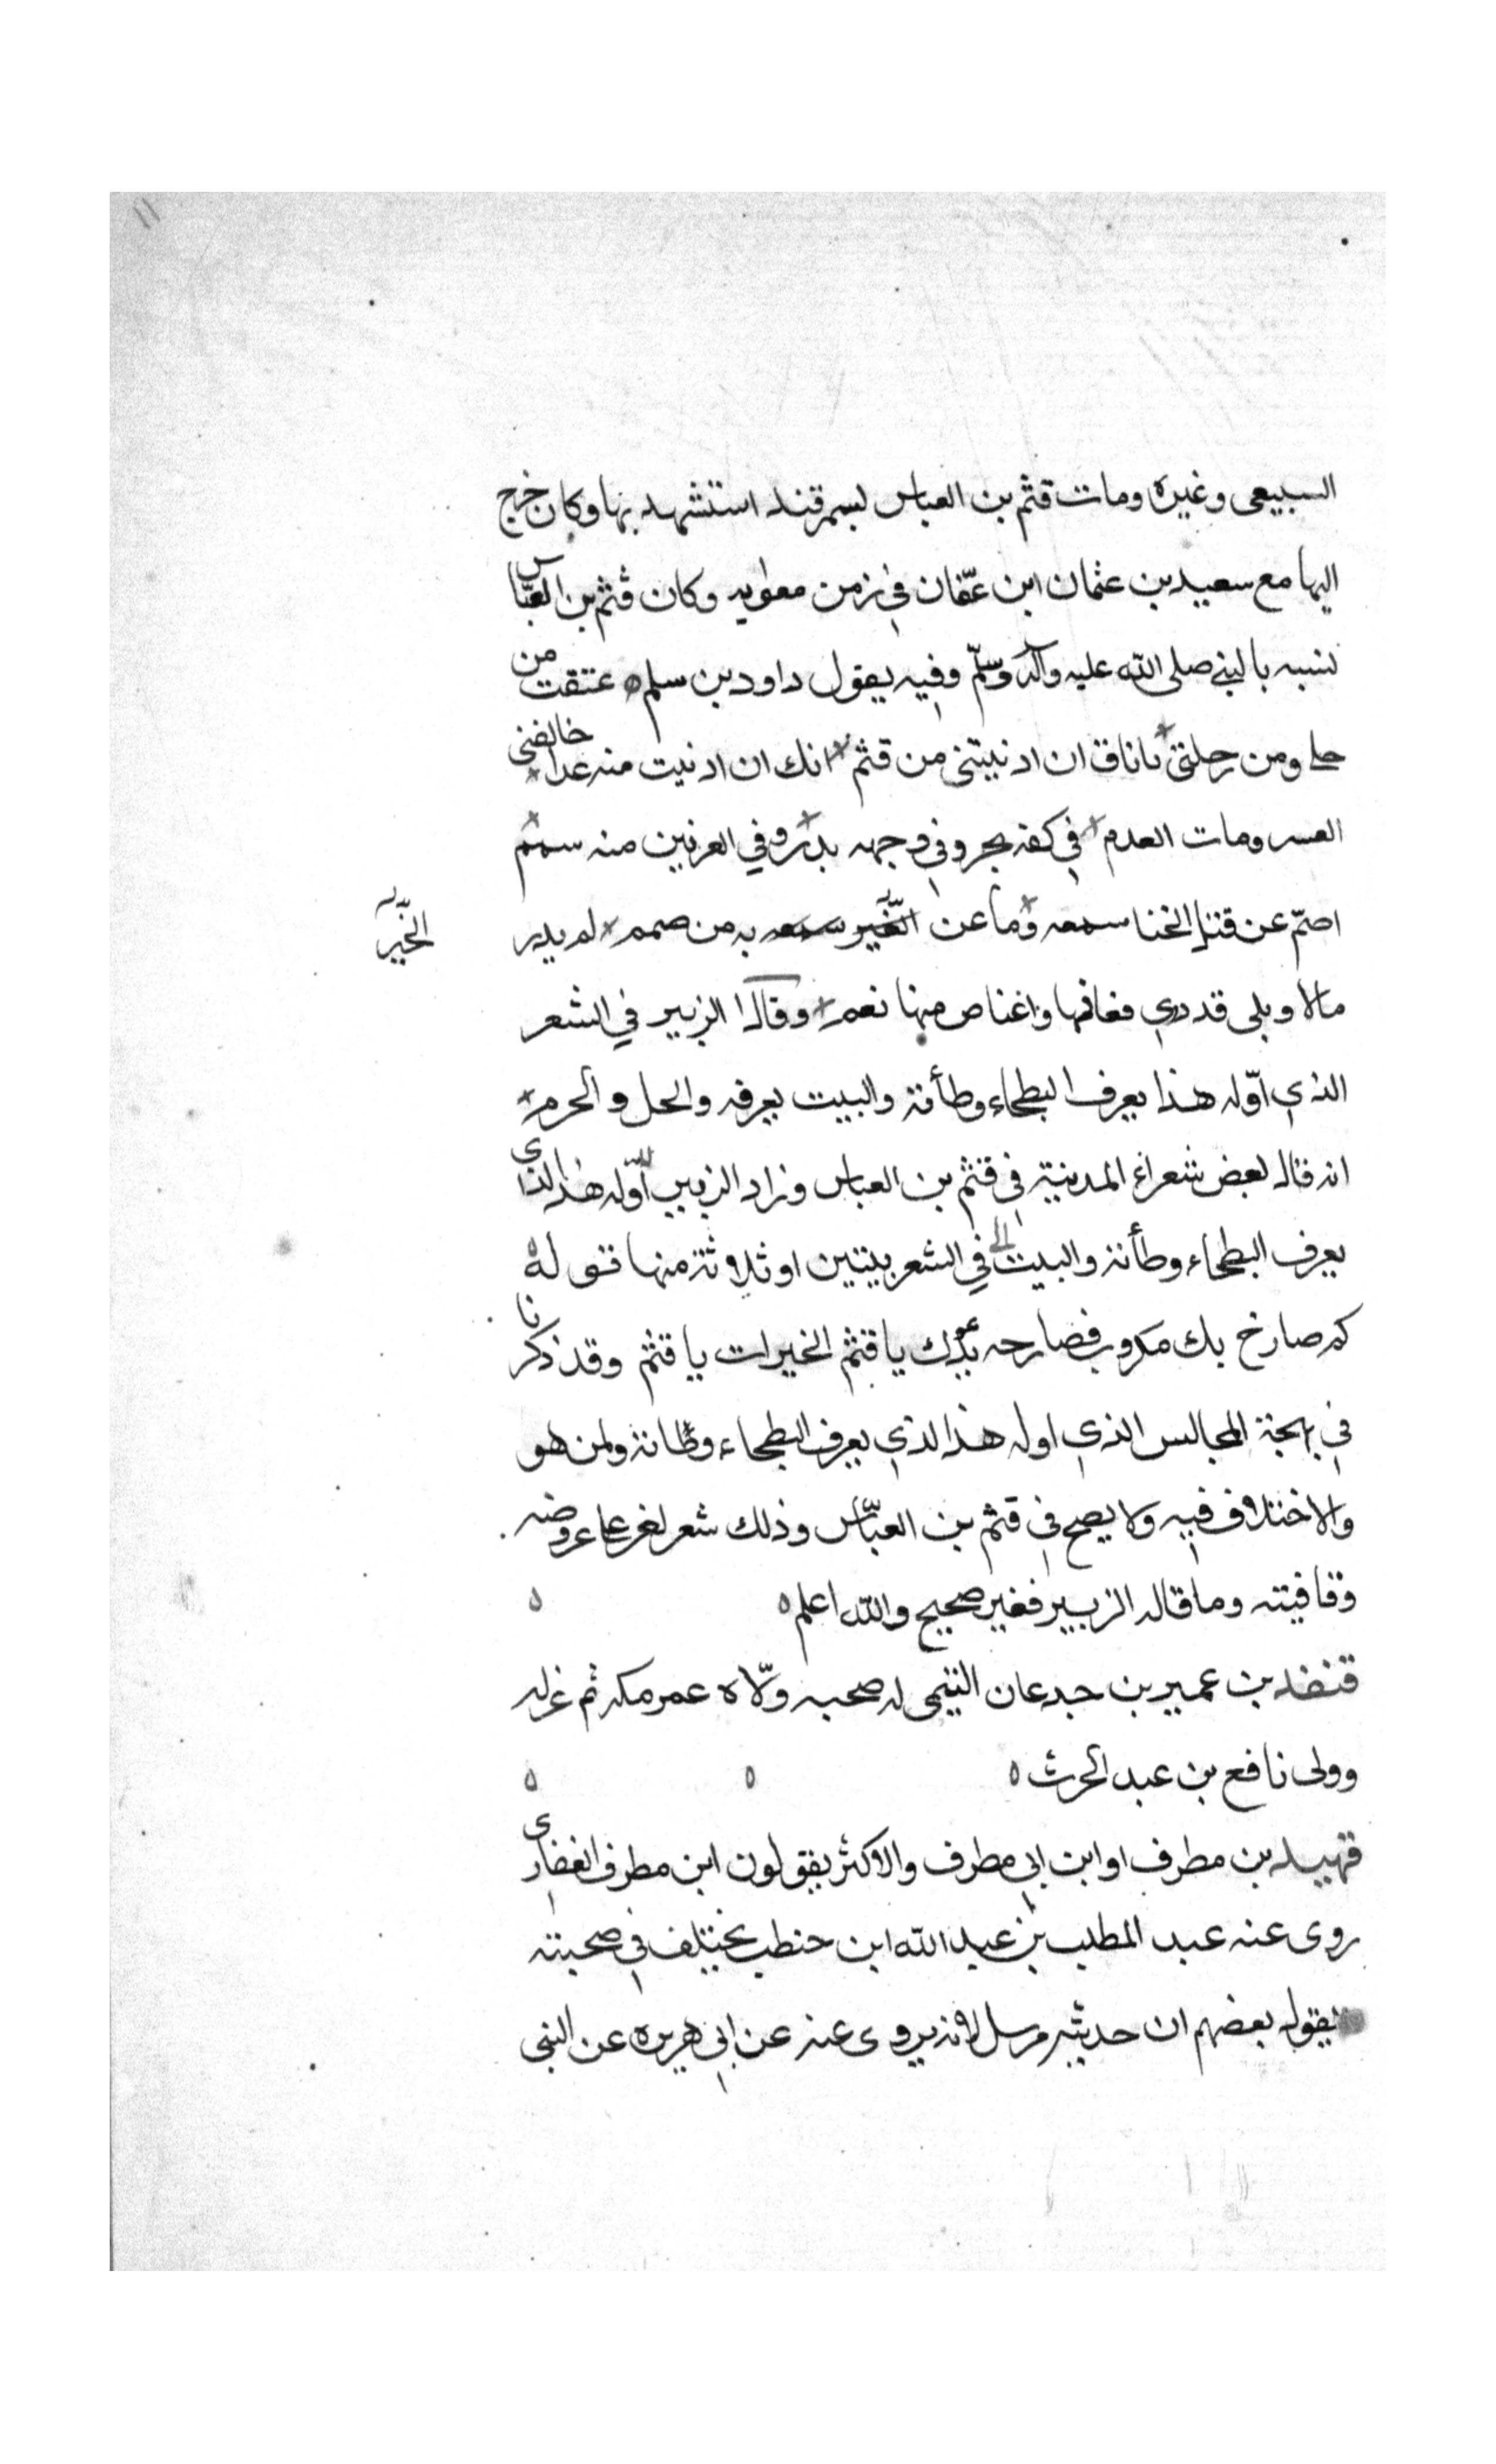 السبيعى وغيره ومات قثم بن العباس بسمرقند استشهد بها وكان خرج
اليها مع سعيد بن عثمان ابن عفّان في زمن معوىه وكان قثم بن العبّاس
نسبه بالنبى صلى الله عليه وآله وسلّم وفيه يقول داود بن سلم عتقت من
حلى ومن رحلتى ياناق ان ادنيتنى من قثم انك ان ادنيت منه غدا خالفنى
العسر ومات العدم في كفه بحر وفي وجهه بدر وفي العرنين منه سمم
اصمّ عن قتل الخنا سمعه وما عن الخير سمعه به من صمم لم يدر
الخير
مالا وبلى قد درى فعافها واغناص منها نعم وقال الزبير في الشعر
الذي اوّله هذا يعرف البطحاء وطأته والبيت يعرفه والحل والحرم
انه قاله بعض شعراء المدينة في قثم بن العباس وزاد الزبير اوّله هذا الذى
يعرف البطحاء وطأته والبيت الى في الشعر بيتين او ثلاثة منها قوله
كم صارخ بك مكروب فصارحه يدعوك يا قثم الخيرات يا قثم وقد ذكرنا
في بهجة المجالس الذي اوله هذا الذي يعرف البطحاء وطأته ولمن هو
والاختلاف فيه ولا يصح في قثم بن العبّاس وذلك شعر لغر على عروضه
وقافيته وما قاله الزبير فغير صحيح والله اعلم
قنفد بن عمير بن جدعان التيمى له صحبه ولّاه عمر مكه ثم عزله
وولى نافع بن عبد الحرث
قهيد بن مطرف او ابن ابي مطرف والاكثر يقولون ابن مطرف الغفارى
روى عنه عبد المطلب بن عبد الله ابن حنطب يختلف في صحبته
يقول بعضهم ان حديثه مرسل لانه يروى عنه عن ابي هريره عن النبى